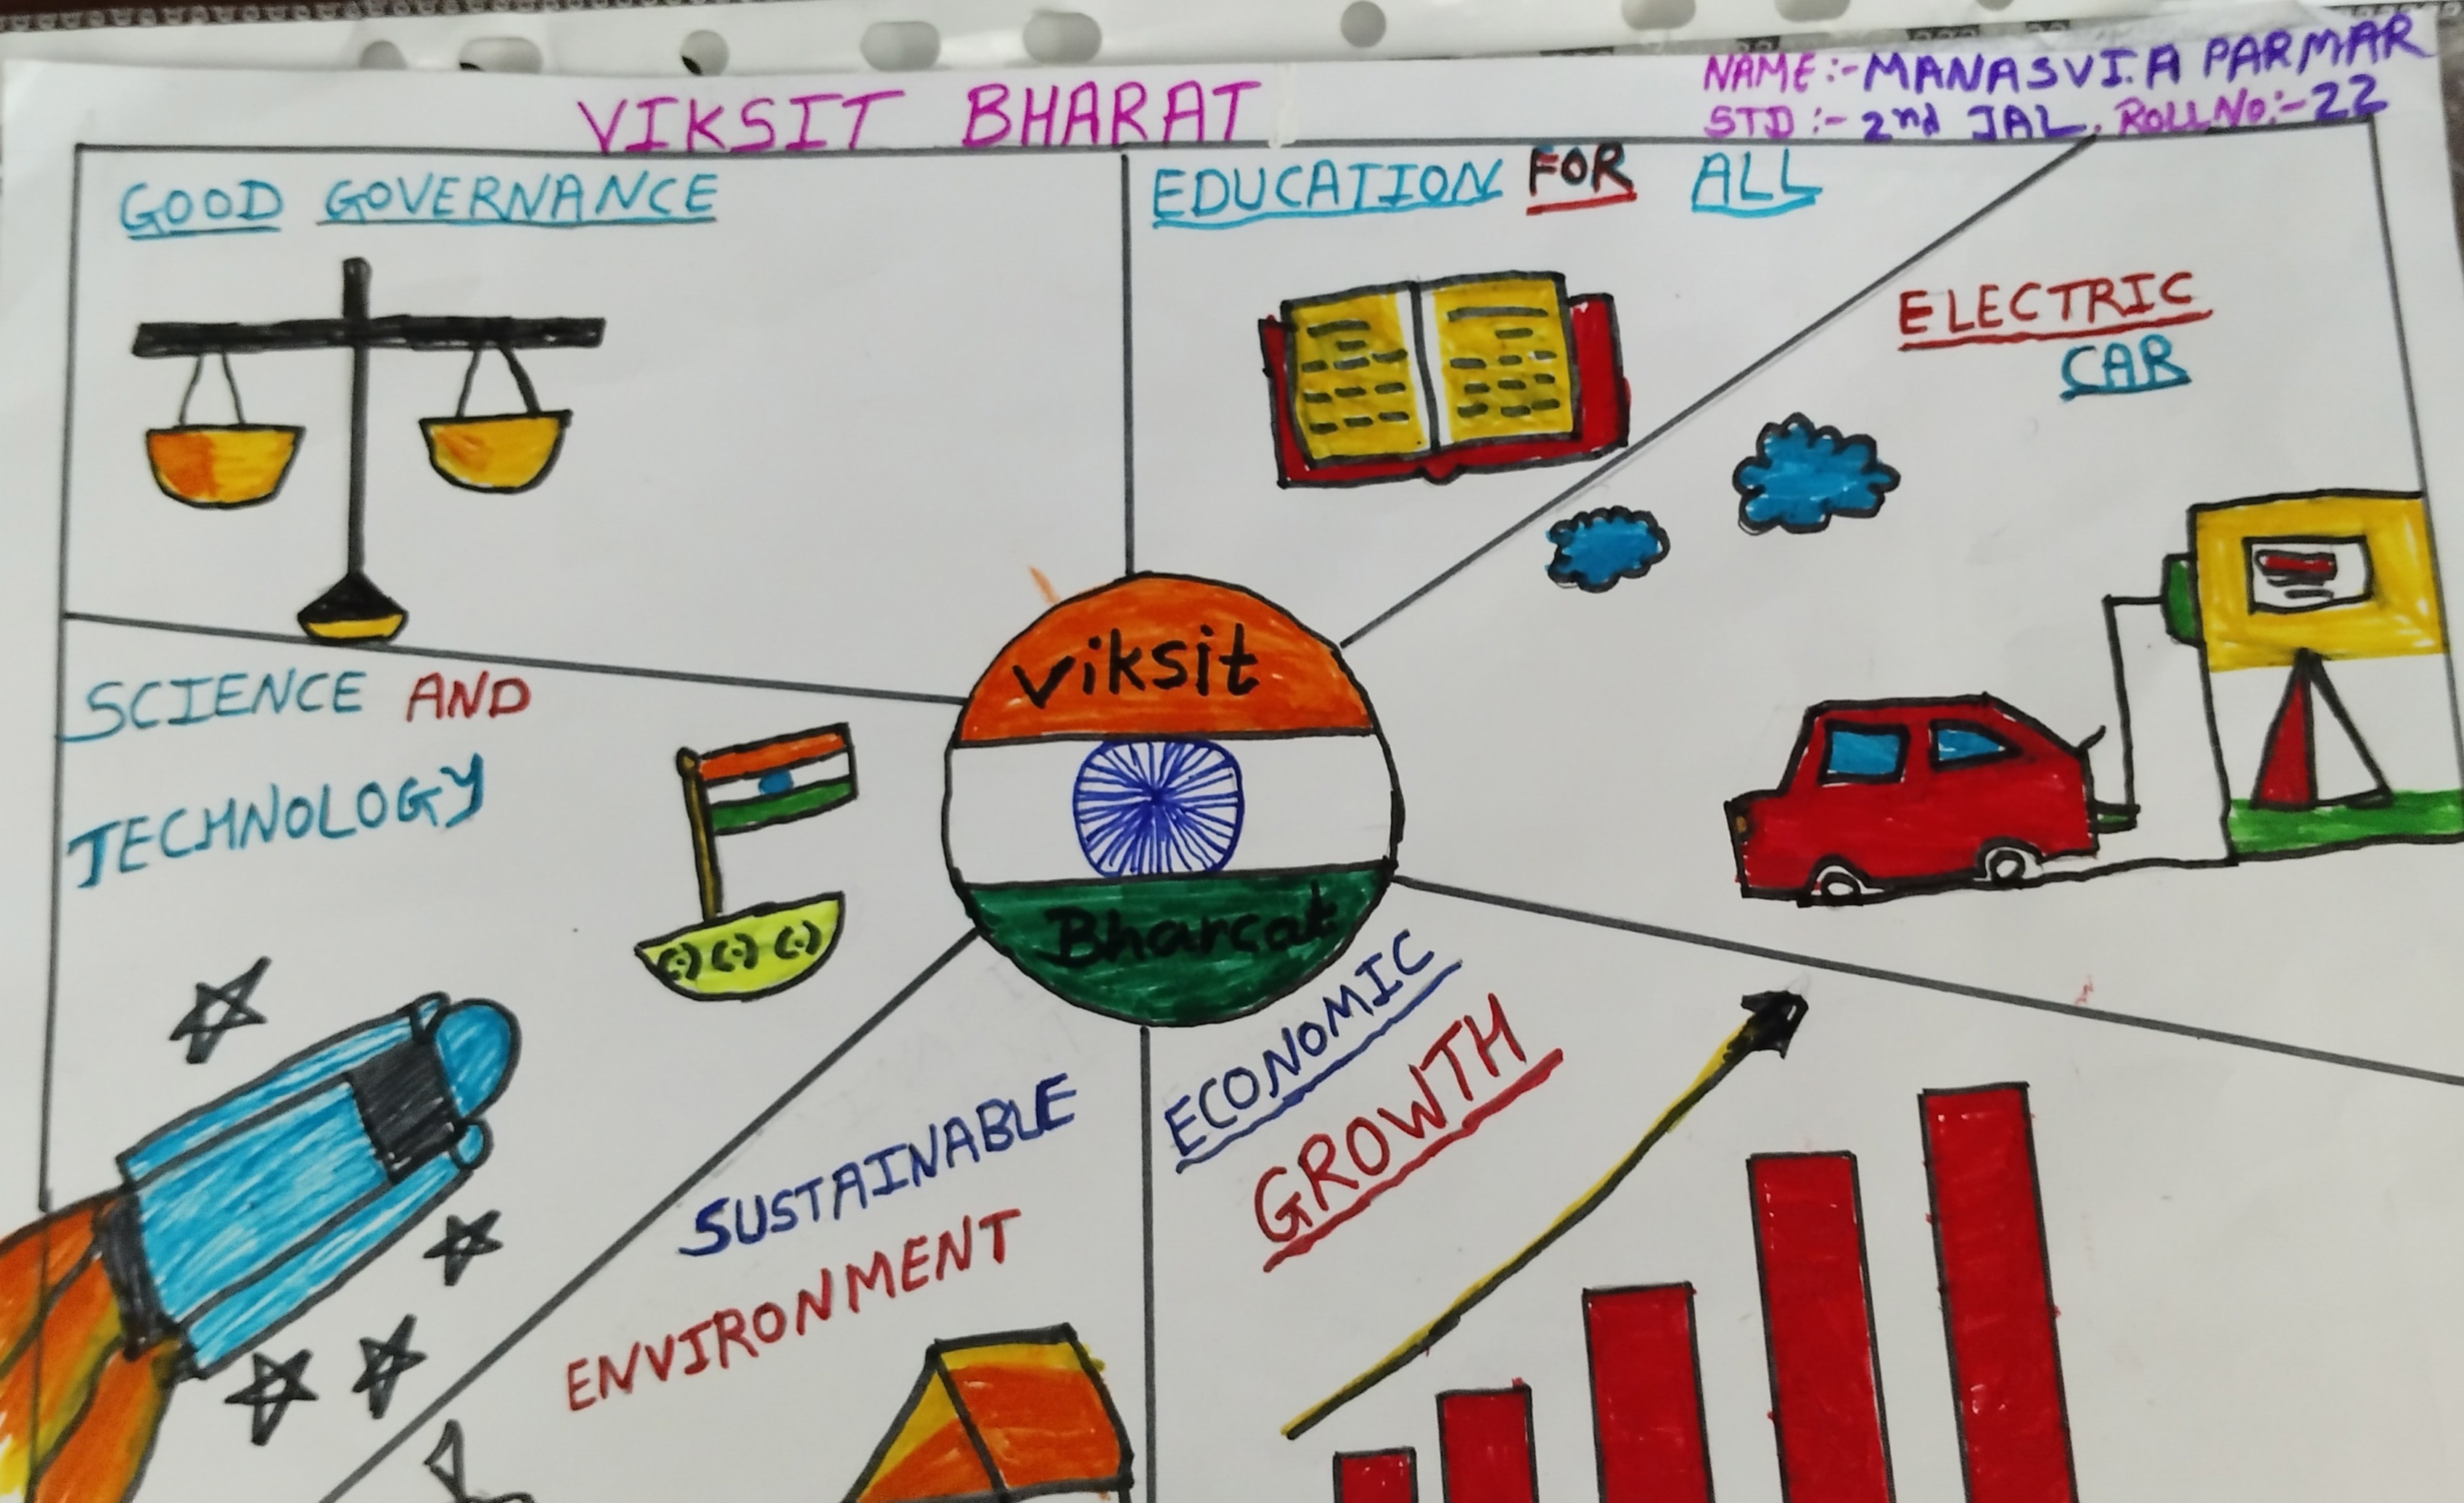 VIKSIT BHARAT
NAME:- MANASVI.A PARMAR
STD :- 2nd JAL. ROLL No:- 22
GOOD GOVERNANCE
EDUCATION FOR ALL
ELECTRIC
CAR
SCIENCE AND
TECHNOLOGY
Viksit
Bharat
SUSTAINABLE
ENVIRONMENT
ECONOMIC
GROWTH